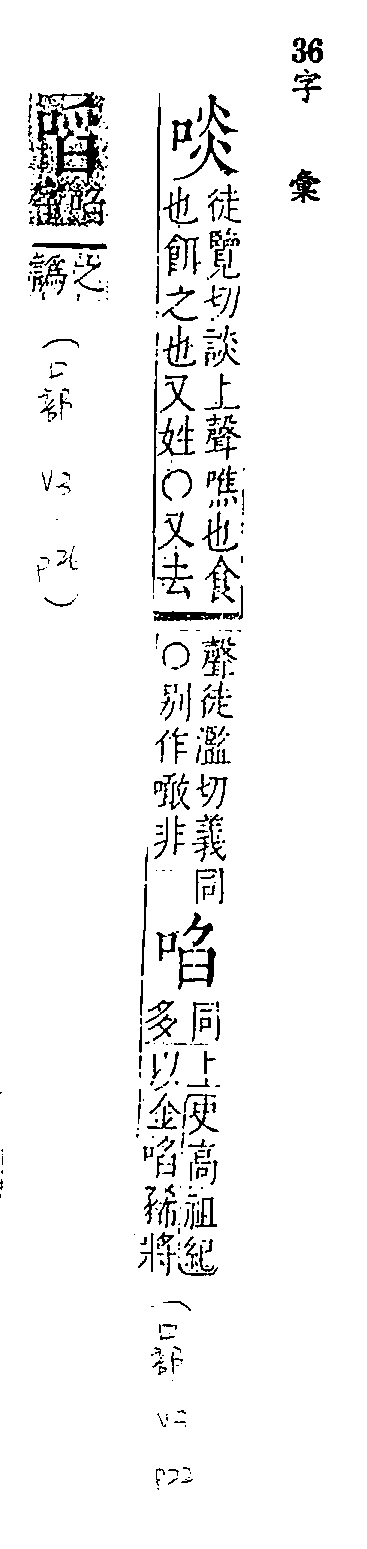 36
字彙
啖
徒覽切談上聲噍也食
也餌之也又姓○又去
聲徒濫切義同
○別作噉非
啗
同上史高祖紀
多以金啗豨將
(口部
P22
啗
之
譌
(口部